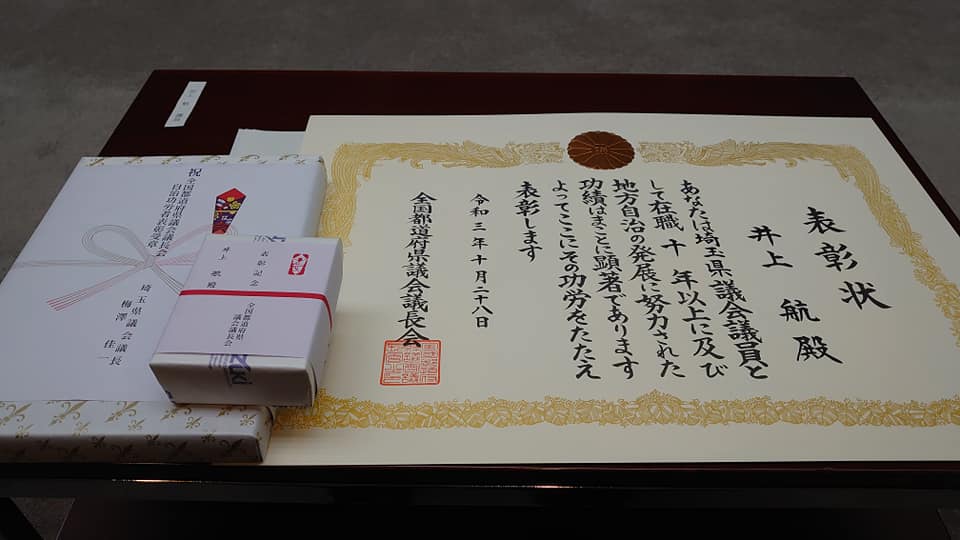 表彰状
井上 航 殿
あなたは埼玉県議会議員と
して在職 十 年以上に及び
地方自治の発展に努力された
功績はまことに顕著であります
よってここにその功労をたたえ
表彰します
令和三年十月二十八日
全国都道府県議会議長会
表彰記念
全国都道府県
議会議長会
井上 航 殿
祝 全国都道府県議会議長会
自治功労者表彰受章
埼玉県議会議長
梅澤 佳一